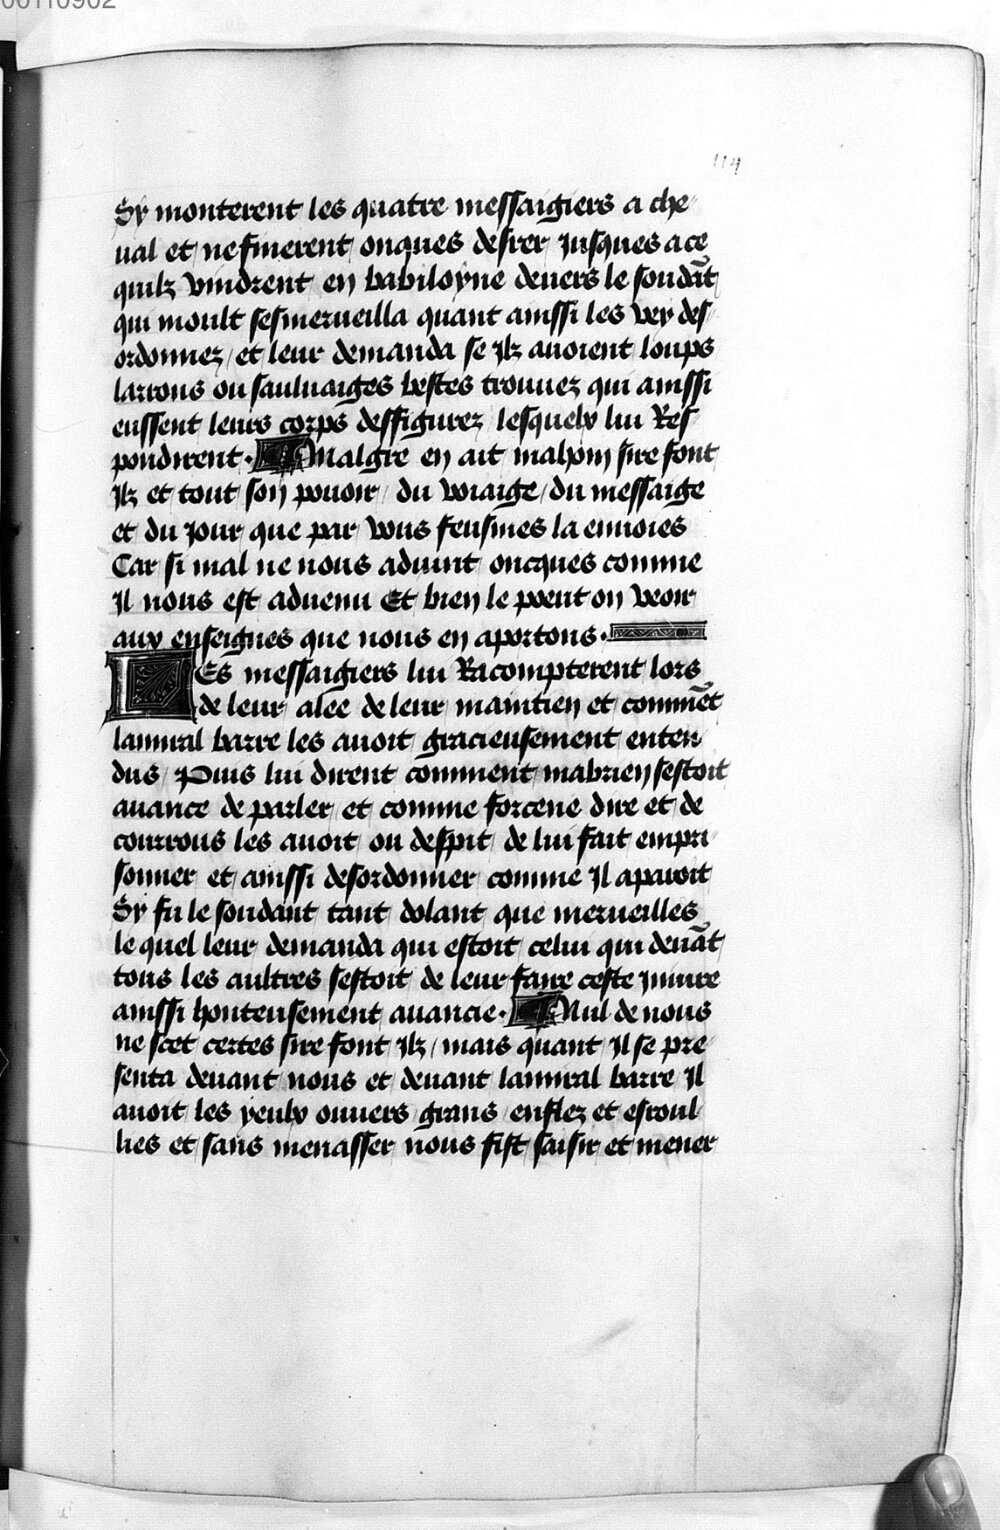 00110902
114
Sy monterent les quatre messaigiers a che
ual et ne finerent onques desrer jusques a ce
quilz vindrent en babiloyne deuers le soudãt
qui moult sesmerueilla quant ainssi les vey des
ordonnez et leur demanda se jlz auoient loups
larrons ou sauluaiges bestes trouuez qui ainssi
eussent leurs corps deffigurez lesquelx lui Res
pondirent. Malgre en ait mahom sire font
jlz et tout son pouoir du voiaige du messaige
et du jour que par vous feusmes la enuoies
Car si mal ne nous aduint oncques comme
Il nous est aduenu Et bien le poeut on veoir
aux enseignes que nous en aportons.
LEs messaigiers lui Racompterent lors
de leur alee de leur maintien et commẽt
lamiral barre les auoit gracieusement enten
dus Puis lui dirent comment mabrien sestoit
auance de parler et comme forcene dire et de
courrous les auoit ou despit de lui fait empri
sonner et ainssi desordonner comme Il apparoit
Sy fu le soudant tant dolant que merueilles
le quel leur demanda qui estoit celui qui deuãt
tous les aultres sestoit de leur faire ceste jniure
ainssi honteusement auancie. Nul de nous
ne scet certes sire font jlz mais quant Il se pre
senta deuant nous et deuant lamiral barre Il
auoit les yeulx ouuers grans enflez et esroul
lies et sans menasser nous fist saisir et mener